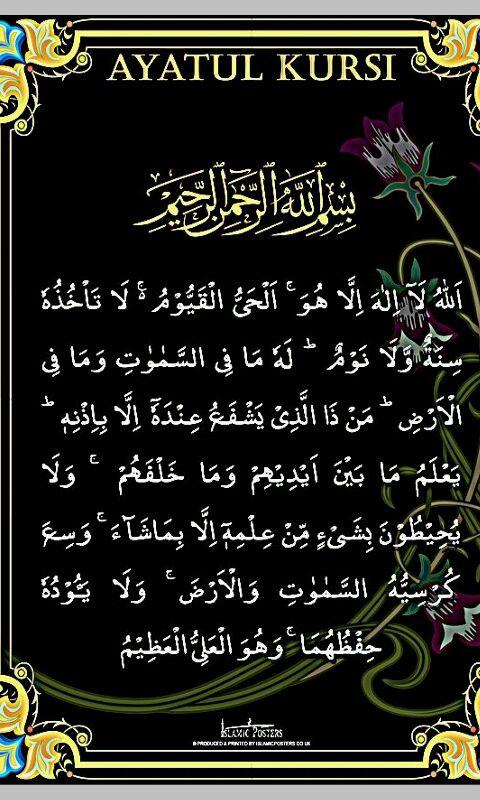 AYATUL KURSI
بِسْمِ اللّٰهِ الرَّحْمٰنِ الرَّحِيْمِ
اَللّٰهُ لَاۤ اِلٰهَ اِلَّا هُوَ ۚ اَلْحَىُّ الْقَيُّوْمُ ۚ لَا تَاْخُذُهٗ
سِنَةٌ وَّلَا نَوْمٌ ؕ لَهٗ مَا فِى السَّمٰوٰتِ وَمَا فِى
الْاَرْضِ ؕ مَنْ ذَا الَّذِىْ يَشْفَعُ عِنْدَهٗۤ اِلَّا بِاِذْنِهٖ ؕ
يَعْلَمُ مَا بَيْنَ اَيْدِيْهِمْ وَمَا خَلْفَهُمْ ۚ وَلَا
يُحِيْطُوْنَ بِشَىْءٍ مِّنْ عِلْمِهٖۤ اِلَّا بِمَاشَآءَ ۚ وَسِعَ
كُرْسِيُّهُ السَّمٰوٰتِ وَالْاَرْضَ ۚ وَلَا يَـُٔوْدُهٗ
حِفْظُهُمَا ۚ وَهُوَ الْعَلِىُّ الْعَظِيْمُ
ISLAMIC POSTERS
®PRODUCED & PRINTED BY ISLAMICPOSTERS.CO.UK